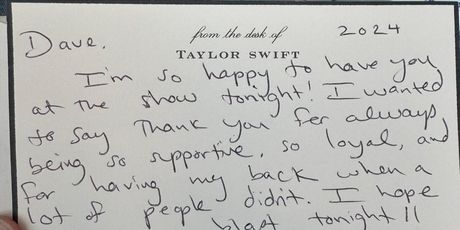 from the desk of
TAYLOR SWIFT
2024
Dave.
I'm so happy to have you
at the show tonight! I wanted
to say Thank you for always
being so supportive, so loyal, and
for having my back when a
lot of people didn't. I hope
blast tonight!!